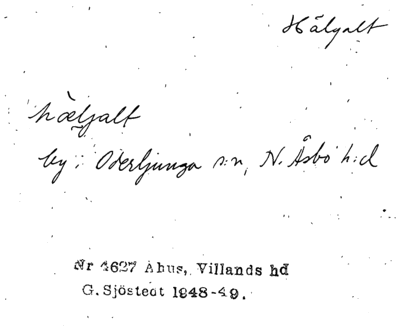 Hälgalt
hæljalt
by i Oderljunga s:n, N. Åsbo h:d
Nr 4627 Åhus, Villands hd
G. Sjöstedt 1948-49.